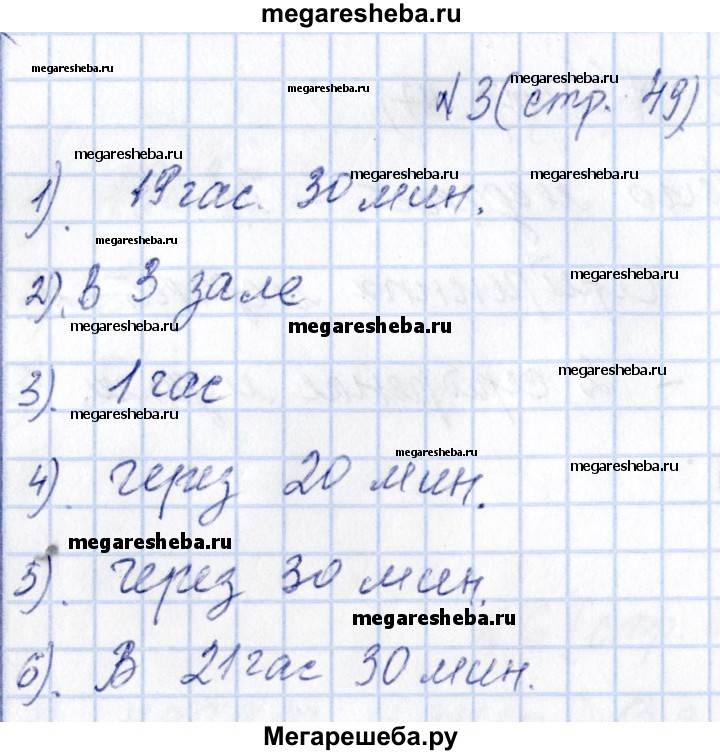 megaresheba.ru
megaresheba.ru
megaresheba.ru
megaresheba.ru
№ 3 (стр. 49)
megaresheba.ru
megaresheba.ru
megaresheba.ru
1). 19 час. 30 мин.
megaresheba.ru
megaresheba.ru
2). В 3 зале
megaresheba.ru
megaresheba.ru
megaresheba.ru
3). 1 час
megaresheba.ru
megaresheba.ru
megaresheba.ru
4). через 20 мин.
megaresheba.ru
5). через 30 мин.
megaresheba.ru
6). В 21 час 30 мин.
Мегарешеба.ру